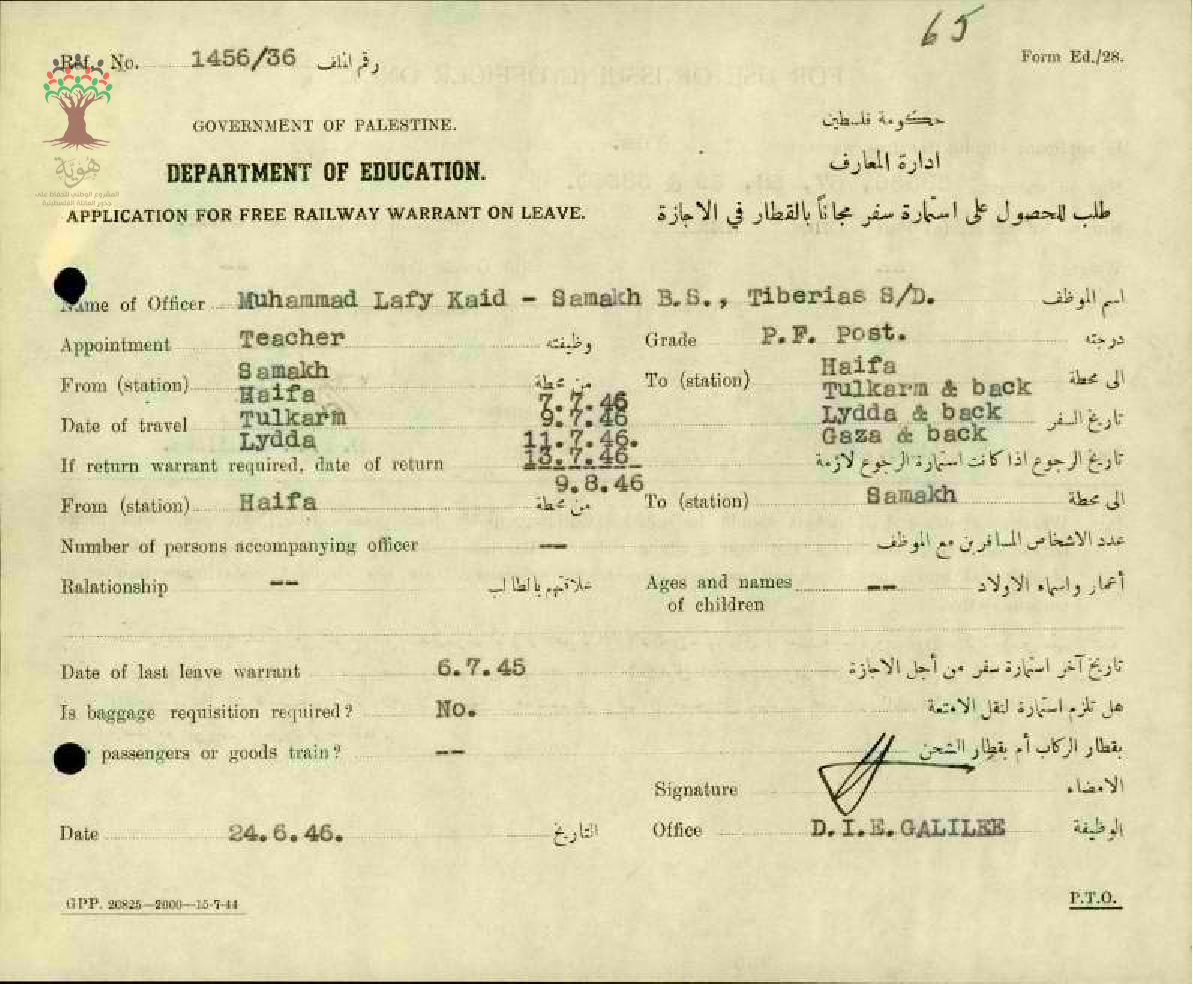 65
Ref. No. 1456/36 رقم الملف
Form Ed./28.
هوية
المشروع الوطني للحفاظ على
جذور العائلة الفلسطينية
GOVERNMENT OF PALESTINE.
حكومة فلسطين
DEPARTMENT OF EDUCATION.
ادارة المعارف
APPLICATION FOR FREE RAILWAY WARRANT ON LEAVE.
طلب للحصول على استمارة سفر مجاناً بالقطار في الاجازة
Name of Officer Muhammad Lafy Kaid - Samakh B.S., Tiberias S/D. اسم الموظف
Appointment Teacher وظيفته Grade P.F. Post. درجته
Samakh Haifa
From (station) من محطة To (station) الى محطة
Haifa 7.7.46 Tulkarm & back
Date of travel Tulkarm 9.7.46 Lydda & back تاريخ السفر
Lydda 11.7.46. Gaza & back
If return warrant required, date of return 13.7.46 تاريخ الرجوع اذا كانت استمارة الرجوع لازمة
9.8.46
From (station) Haifa من محطة To (station) Samakh الى محطة
Number of persons accompanying officer -- عدد الاشخاص المسافرين مع الموظف
Ralationship -- علاقتهم بالطالب Ages and names -- أعمار واسماء الاولاد
of children
Date of last leave warrant 6.7.45 تاريخ آخر استمارة سفر من أجل الاجازة
Is baggage requisition required? No. هل تلزم استمارة لنقل الامتعة
passengers or goods train? -- بقطار الركاب أم بقطار الشحن
Signature الامضاء
Date 24.6.46. التاريخ Office D.I.E. GALILEE الوظيفة
GPP. 20825—2000—15-7-44
P.T.O.